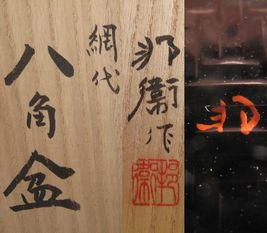 網代
八角盆
邦衛作